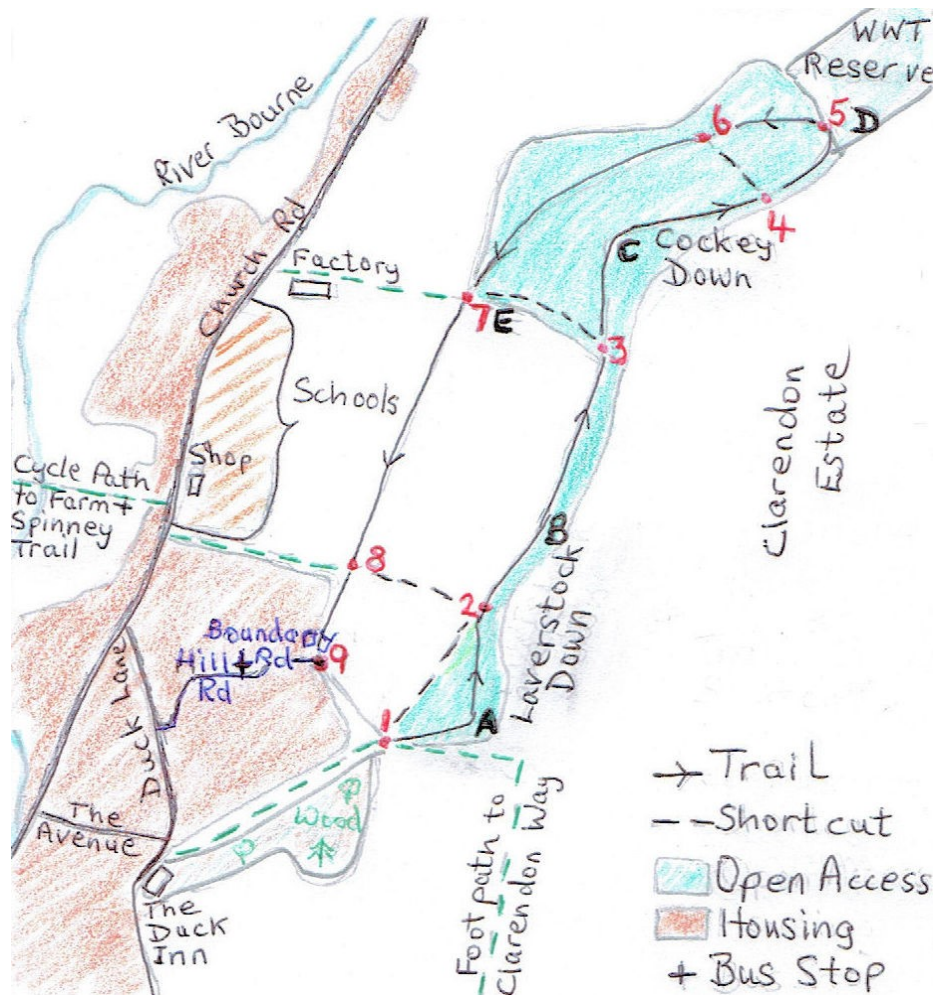 WWT
Reserve
River Bourne
6
5
D
4
C
Cockey
Down
Church Rd
Factory
7
E
3
Schools
Shop
Clarendon
Estate
Cycle Path
to Farm +
Spinney
Trail
B
8
2
Laverstock
Down
Boundary
Hill + Rd
Rd
9
Duck Lane
1
A
The
Avenue
Wood
The
Duck
Inn
Footpath to
Clarendon Way
Trail
Short cut
Open Access
Housing
+ Bus Stop